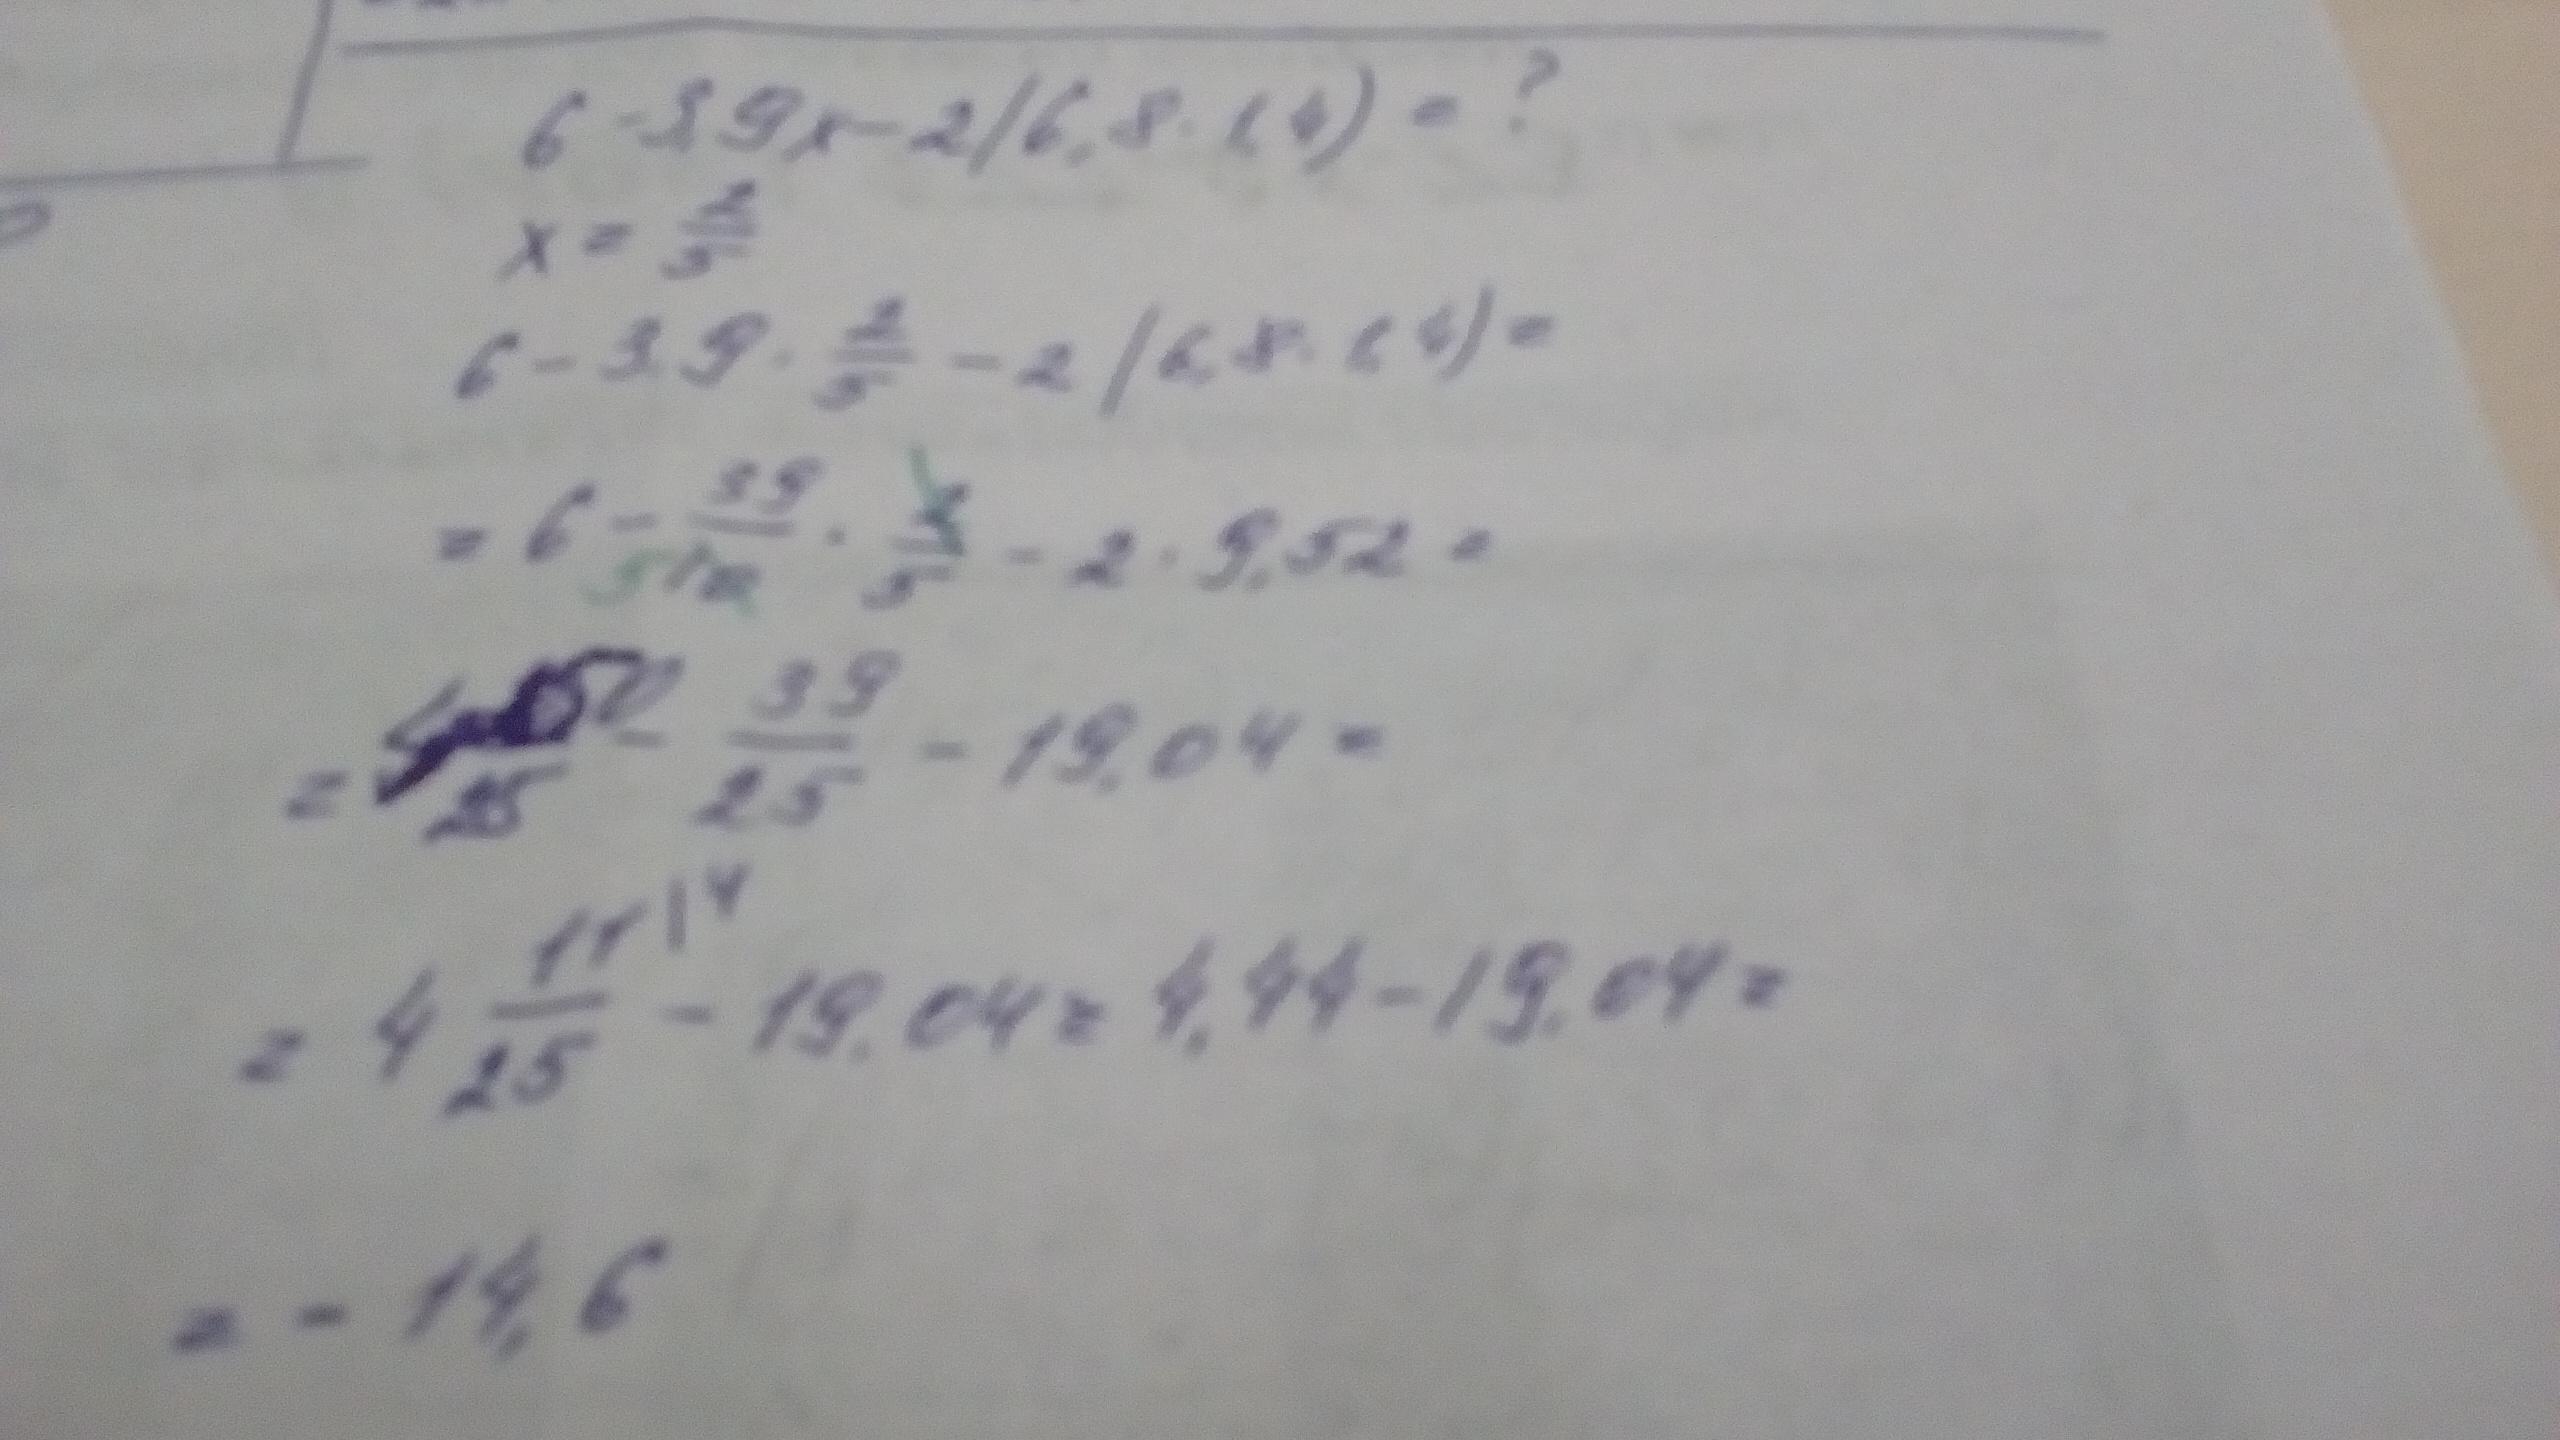 6 - 3,9x - 2(6,8 · 1,4) = ?
x = 2/5
6 - 3,9 · 2/5 - 2(6,8 · 1,4) =
= 6 - 39/10 · 2/5 - 2 · 9,52 =
= 150/25 - 39/25 - 19,04 =
= 4 11/25 |4 - 19,04 = 4,44 - 19,04 =
= - 14,6